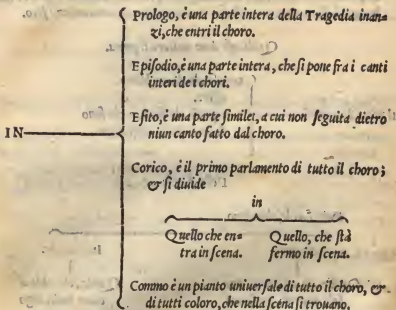 Prologo, è una parte intera della Tragedia inan=
zi, che entri il choro.
Episodio, è una parte intera, che si pone fra i canti
interi de i chori.
Esito, è una parte simile, a cui non seguita dietro
niun canto fatto dal choro.
IN
Corico, è il primo parlamento di tutto il choro;
& si diuide
in
Quello che en=
tra in scena.
Quello, che stà
fermo in scena.
Commo è un pianto uniuersale di tutto il choro, &
di tutti coloro, che nella scena si trouano.